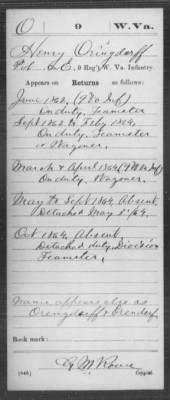 O | 9 | W. Va.
Henry Oringdorff
Pvt. Co. E, 9 Reg't W. Va. Infantry.
Appears on
Returns as follows:
June 1862, (9 Va Inf)
On duty, Teamster
Sept 1862 to Feby 1864,
On duty, Teamster
or Wagoner.
March & April 1864 (9 Va Inf)
On duty, Wagoner.
May to Sept 1864 Absent
Detached May 5/64.
Oct 1864, Absent
Detached duty Division
Teamster.
Name appears also as
Orengdorff & Orendorf.
Book mark:
G M Rowe
(546) Copyist.